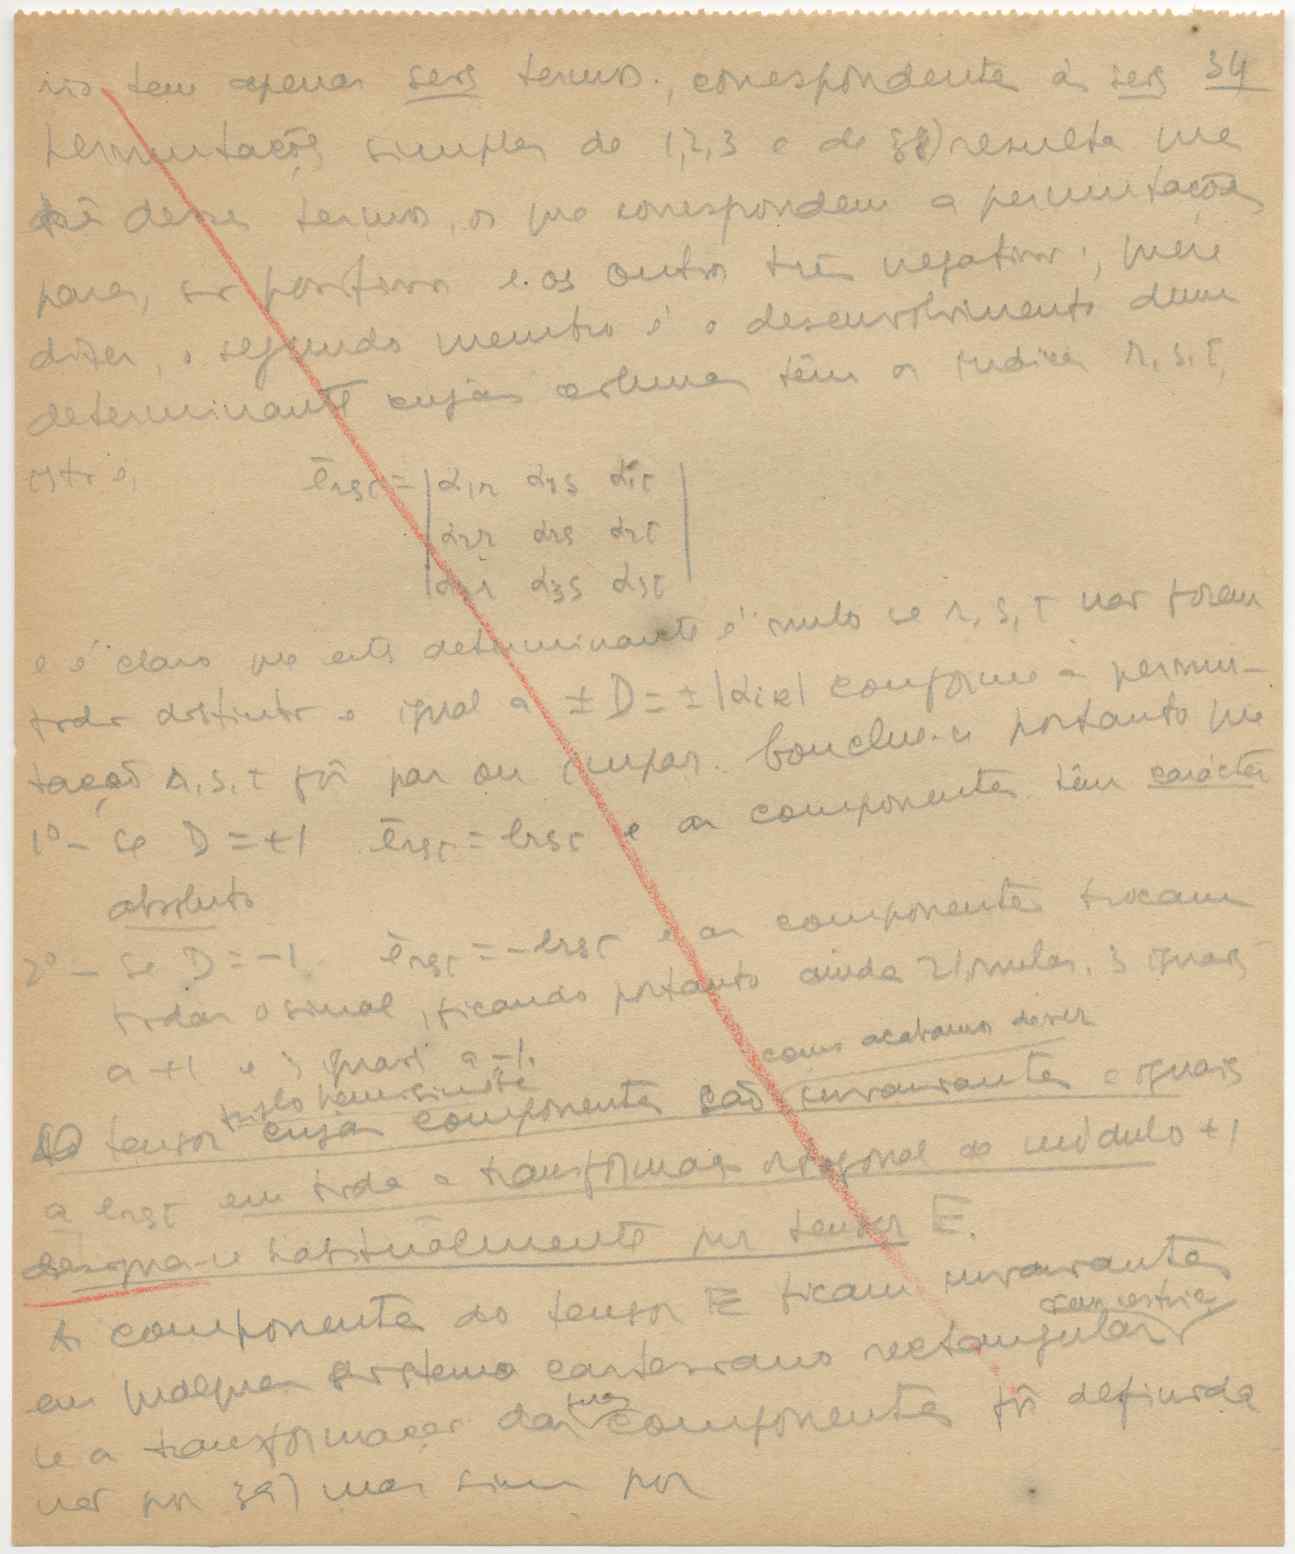 34
tem apenas seis termos, correspondentes às seis
permutações simples de 1,2,3 e de 38) resulta que
três desses termos, os que correspondem a permutações
pares, são positivos e os outros três negativos; quere
dizer, o segundo membro é o desenvolvimento dum
determinante cujas colunas têm os índices r, s, t,
isto é,
ērst = | α1r α1s α1t |
| α2r α2s α2t |
| α3r α3s α3t |
e é claro que este determinante é nulo se r, s, t não forem
todos distintos e igual a ± D = ± |αik| conforme a permu-
tação r, s, t fôr par ou ímpar. Conclue-se portanto que
1º - se D = +1 ērst = erst e as componentes têm carácter
absoluto
2º - se D = -1 ērst = -erst e as componentes trocam
todas o sinal, ficando portanto ainda 21 nulas, 3 iguais
a +1 e 3 iguais a -1.
como acabamos de ver
triplo hemisimétrico
O tensor cujas componentes são invariantes e iguais
a erst em toda a transformação ortogonal de módulo +1
designa-se habitualmente por tensor E.
As componentes do tensor E ficam invariantes
em qualquer sistema cartesiano rectangular
se a transformação das suas componentes fôr definida
não por 39) mas sim por